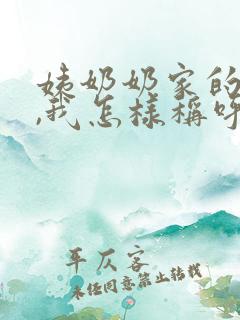 姨奶奶家的
,我怎樣稱呼
平仄客
未经同意禁止转载